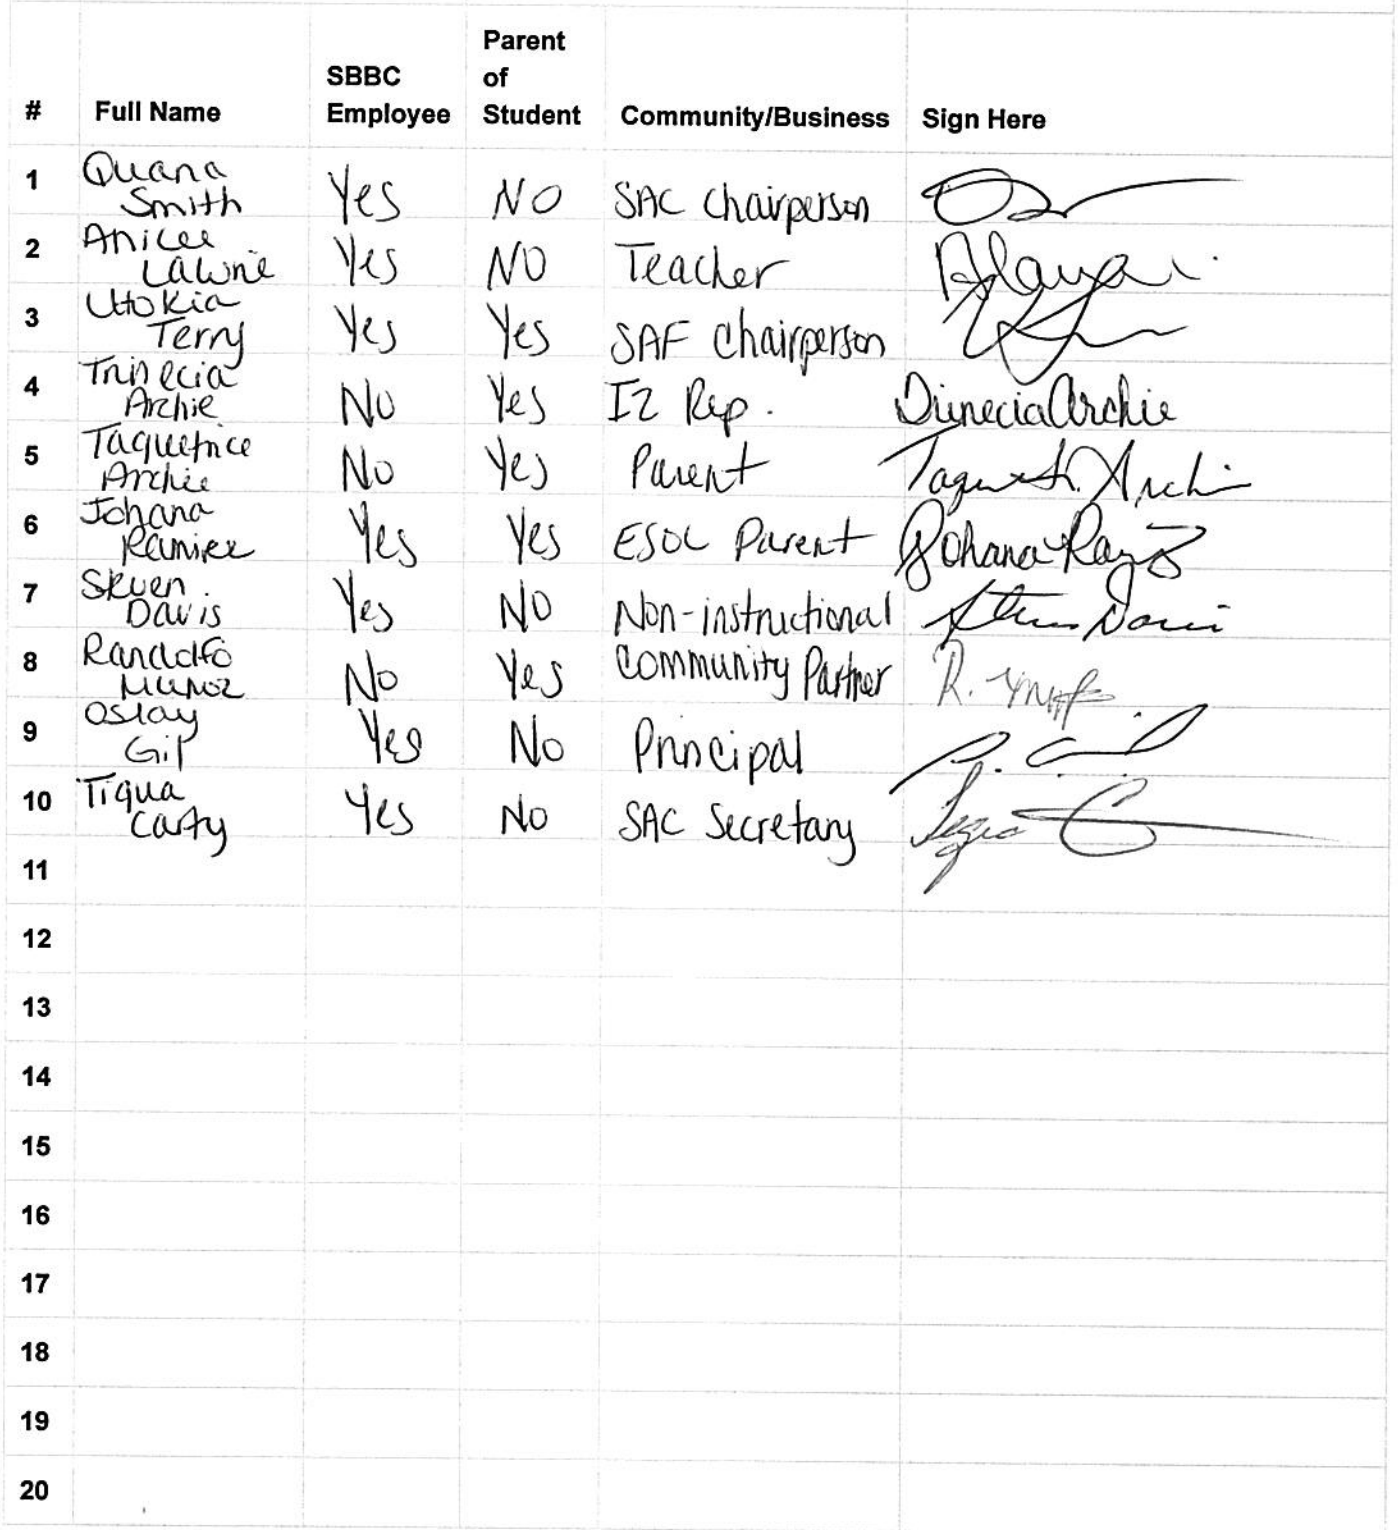 Parent
SBBC of
# Full Name Employee Student Community/Business Sign Here
1 Quana Smith Yes NO SAC Chairperson
2 Anicee Lawrie Yes NO Teacher
3 Utokia Terry Yes Yes SAF Chairperson
4 Trinecia Archie No Yes IZ Rep. Trinecia Archie
5 Taquetrice Archie No Yes Parent Archie
6 Johana Ramirez Yes Yes ESOL Parent Johana
7 Steven Davis Yes NO Non-instructional Steven Davis
8 Randolfo Munoz No Yes Community Partner R.
9 Oslay Gil Yes No Principal
10 Tiqua Carty Yes No SAC Secretary
11
12
13
14
15
16
17
18
19
20